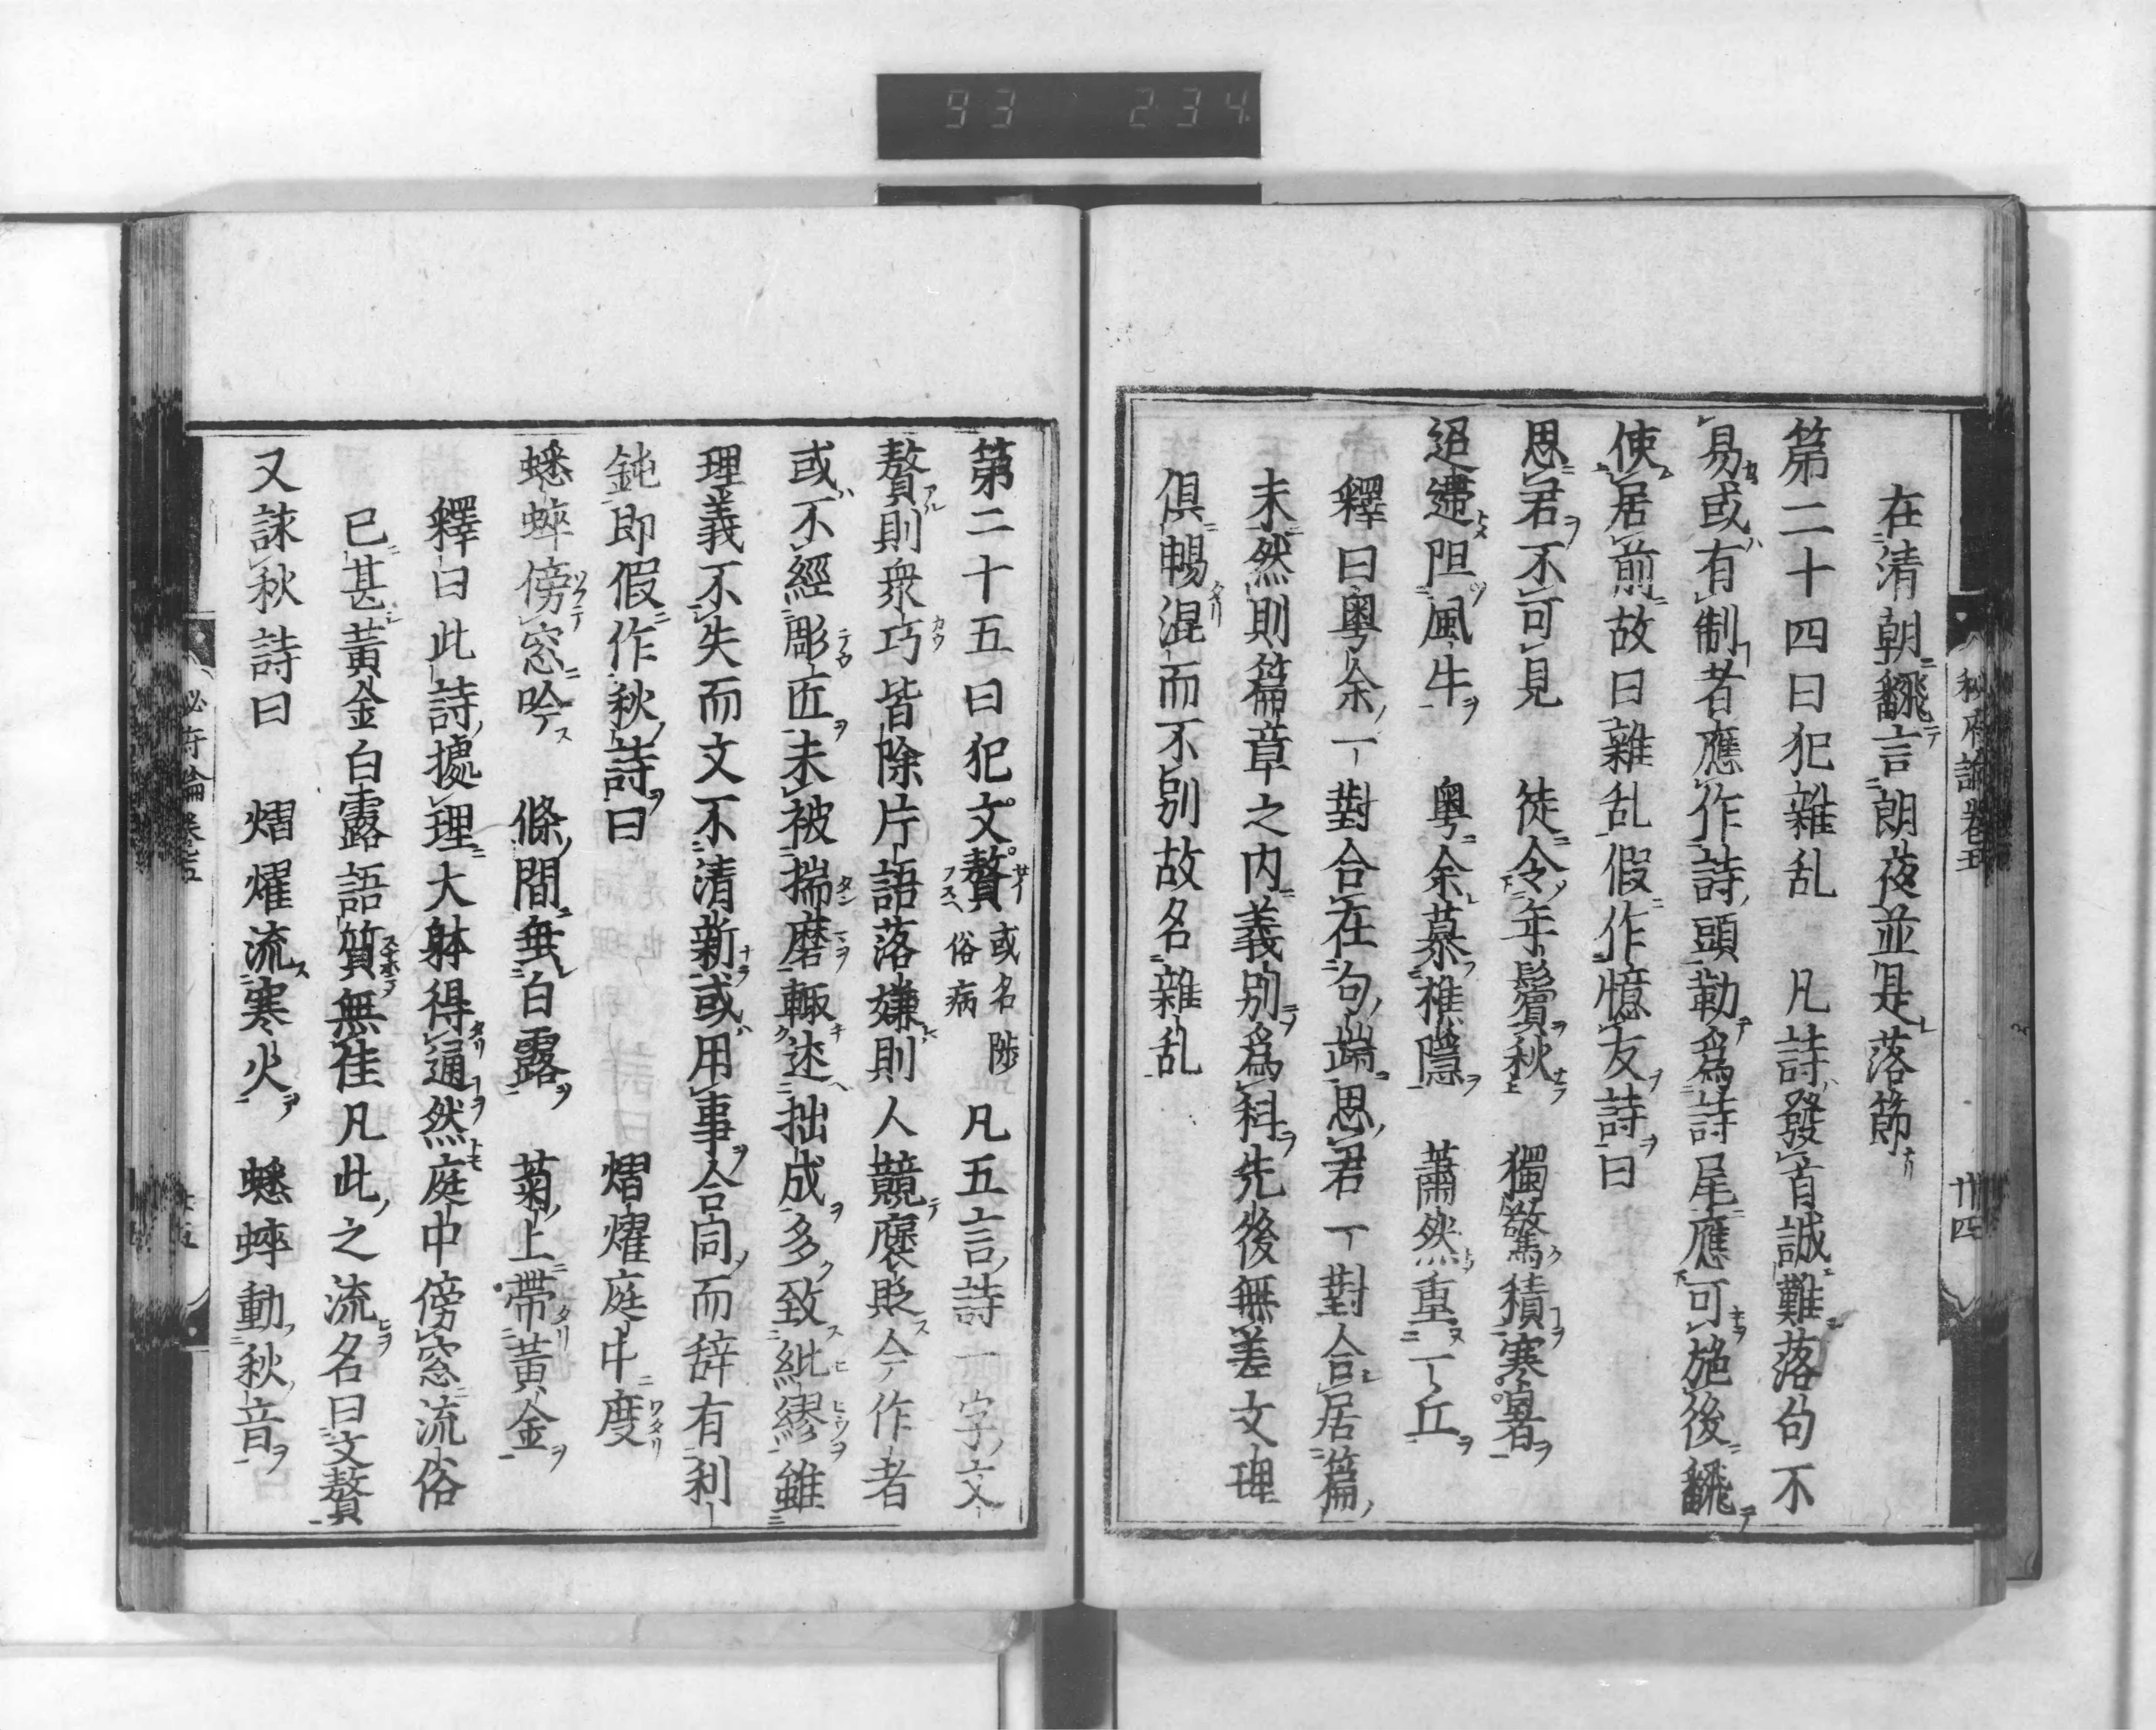 93 234
在清朝翻言朗夜並是落節
第二十四曰犯雜乱　凡詩發首誠難落句不
易或有制者應作詩頭勒爲詩尾應可施後翻
使居前故曰雜乱假作憶友詩曰
思君不可見　徒令年鬢秋　獨驚積寒暑
迢遰阻風牛　粵余慕樵隱　蕭然重一丘
釋曰粵余一對合在句端思君一對合居篇
末然則篇章之内義別爲科先後無差文理
俱暢混而不別故名雜乱
秘府論卷五　廿四
第二十五曰犯文贅或名陟俗病　凡五言詩一字文
贅則衆巧皆除片語落嫌則人競褒貶今作者
或不經彫匠未被揣磨輙述拙成多致紕繆雖
理義不失而文不清新或用事合同而辞有利
鈍即假作秋詩曰　熠燿庭中度
蟋蟀傍窓吟　條間垂白露　菊上帶黃金
釋曰此詩據理大躰得通然庭中傍窓流俗
已甚黃金白露語質無佳凡此之流名曰文贅
又詠秋詩曰　熠燿流寒火　蟋蟀動秋音